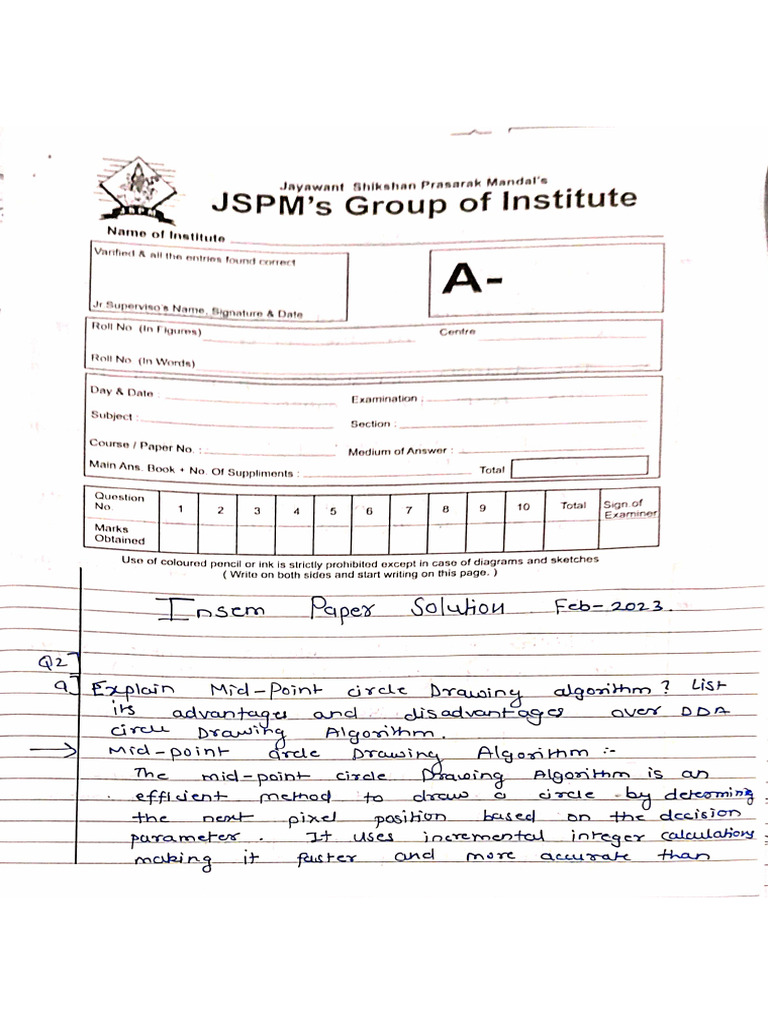 Jayawant Shikshan Prasarak Mandal's
JSPM's Group of Institute
JSPM
Name of Institute
Varified & all the entries found correct
A-
Jr Superviso's Name, Signature & Date
Roll No (In Figures)
Centre
Roll No. (In Words)
Day & Date :
Examination :
Subject :
Section :
Course / Paper No. :
Medium of Answer :
Main Ans. Book + No. Of Suppliments :
Total
Question No. 1 2 3 4 5 6 7 8 9 10 Total Sign of Examiner
Marks Obtained
Use of coloured pencil or ink is strictly prohibited except in case of diagrams and sketches
( Write on both sides and start writing on this page. )
Insem Paper Solution Feb-2023.
Q2]
a] Explain Mid-Point circle Drawing algorithm? List
its advantages and disadvantages over DDA
circle Drawing Algorithm.
→ Mid-point circle Drawing Algorithm :-
The mid-point circle Drawing Algorithm is an
efficient method to draw a circle by determing
the next pixel position based on the decision
parameter. It uses incremental integer calculations
making it faster and more accurate than